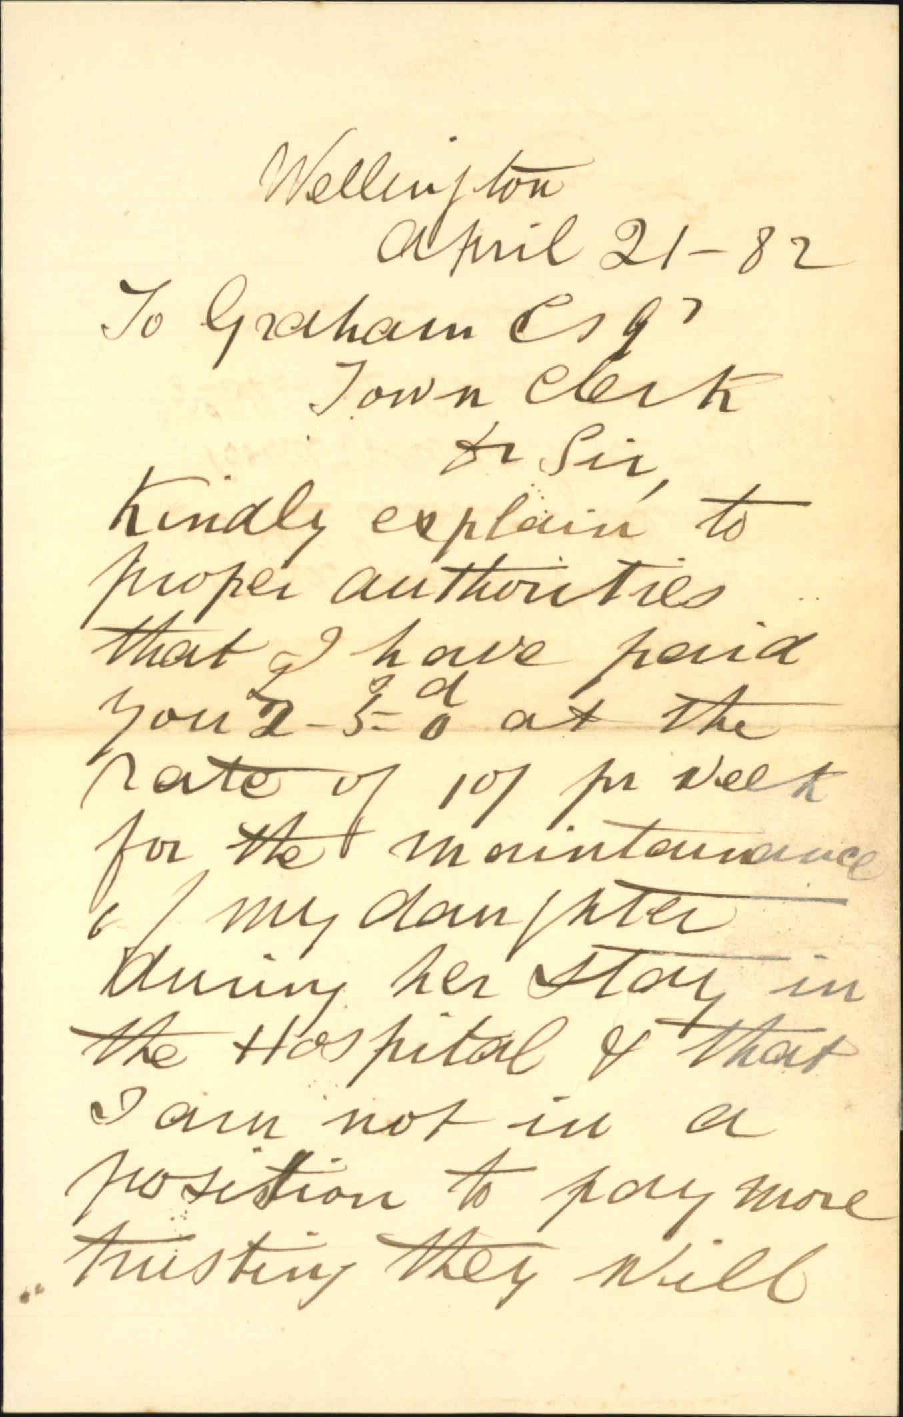 Wellington
April 21-82
To Graham Esqr
Town Clerk
Dr Sir,
Kindly explain to
proper authorities
that I have paid
you £2-5s-0d at the
rate of 10/ pr week
for the maintainance
of my daughter
during her stay in
the Hospital & that
I am not in a
position to pay more
trusting they will